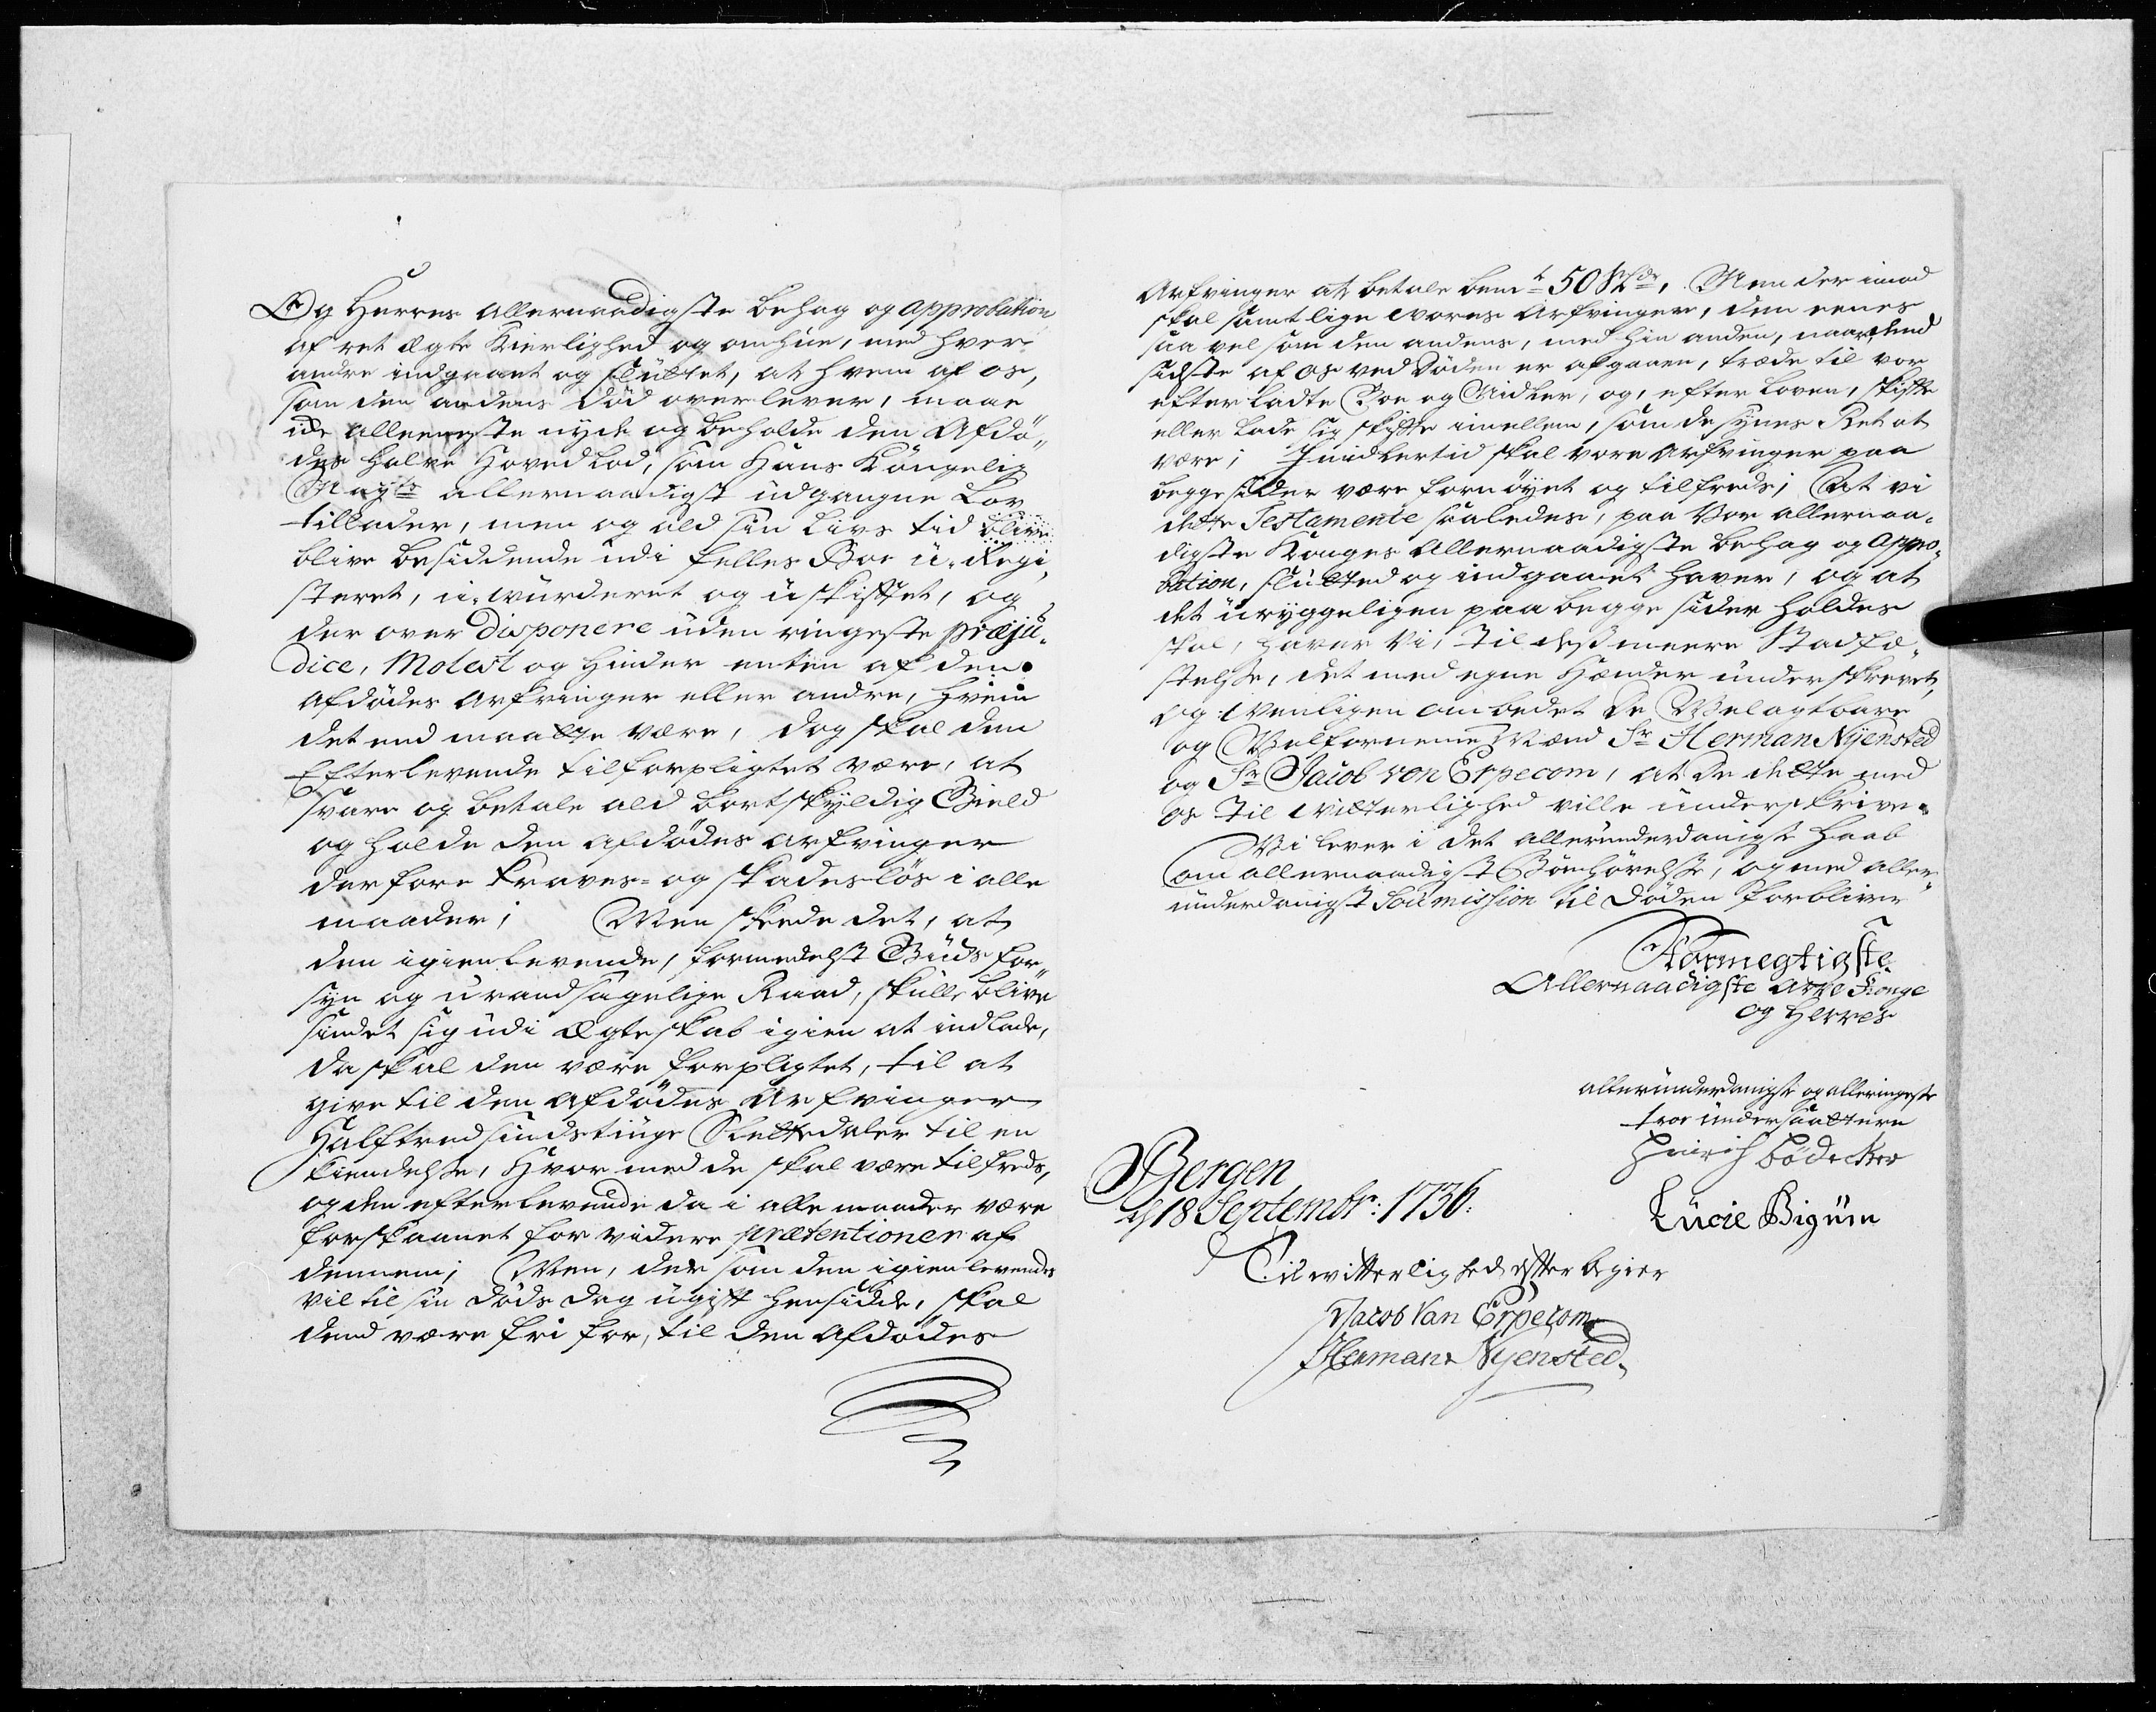 Og Herres allernaadigste behag og approbation
af ret ægte Kierlighed og omhue, med hver
andre indgaaet og sluttet, at hvem af os,
som den andens Død overlever, maae
ide alleeneste nyde og beholde den Afdö-
des halve Hovedlod, som Hans Kongelig
Mayts allernaadigst udgangne Lov
tillader, men og ald sin Livs tid blive
blive besiddende udi felles Boe u-Regi-
steret, u-wurderet og uskiftet, og
der over Disponere uden ringeste præju-
dice, Molest og hinder enten af den
afdödes arfvinger eller andre, hvem
det end maatte være, dog skal den
Efterlevende tilforpligtet være, at
svare og betale ald bortskyldig Gield
og holde den afdödes arfvinger
derfore kraves- og skadeslös i alle
maader; Men skede det, at
den igienlevende, formedelst Guds for-
syn og urandsagelige Raad, skulle blive
sindet sig udi Ægteskab igien at indlade,
da skal den være forpligtet, til at
give til den Afdödes Arfvinger
Halftredsindstiuge Slettedaler til en
kiendelse, Hvormed de skal være tilfreds,
og den efterlevende da i alle maader være
forskaanet for videre prætentioner af
dennem; Men, dersom den igienlevendes
vil til sin Döds dag ugift hensidde, skal
dend være fri for, til den Afdödes
Arfvinger at betale bemte 50 Rdr, Men der imod
skal samtlige vores Arfvinger, den eenes
saa vel som den andens, med hin anden, naar dend
sidste af os ved Döden er afgaaen, træde til vor
efterladte Boe og Midler, og, efter Loven, skifte
eller lade sig skifte imellem, som de synes Ret at
være; Jmidlertid skal vore Arfvinger paa
begge sider være fornöyet og tilfreds; At vi
dette Testamente saaledes, paa Vor allernaa-
digste Konges Allernaadigste behag og appro-
bation, sluttet og indgaaet haver, og at
det uryggeligen paa begge sider holdes
skal, haver vi, til des meere Stadfæ-
stelse, det med egne Hænder underskrevet,
og venligen ombedet De Velagtbare
og Velfornemme Mænd Sr Herman Nyensted
og Sr Jacob von Erpecom, at de dette med
os til vitterlighed ville underskrive.
Vi lever i det allerunderdanigst haab
om allernaadigst Bönhörelse, og med aller
underdanigst Soumission til Döden forblive
Stormegtigste
Allernaadigste Arfve Konge
og Herres
allerunderdanigste og alleringeste
troe undersaatterne
Hinrich Bödecker
Lucie Bigum
Bergen,
d 18 Septembr: 1736.
Til witterlighed efter begier
Jacob Van Erpecom
Herman Nyensted